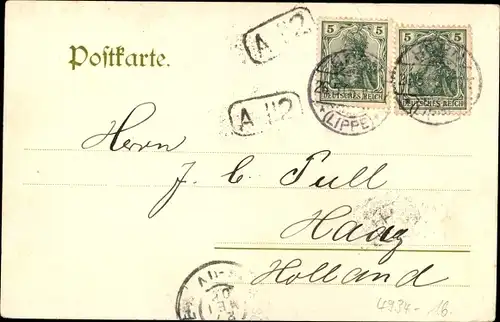 Postkarte.
A II2
A II2
5 5
5 5
DEUTSCHES REICH
DEUTSCHES REICH
(LIPPE)
Herrn
J. C. Pull
Haag
Holland
4934 - 16.